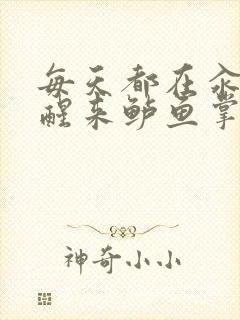 每天都在汆
醒来鲈鱼掌
神奇小小